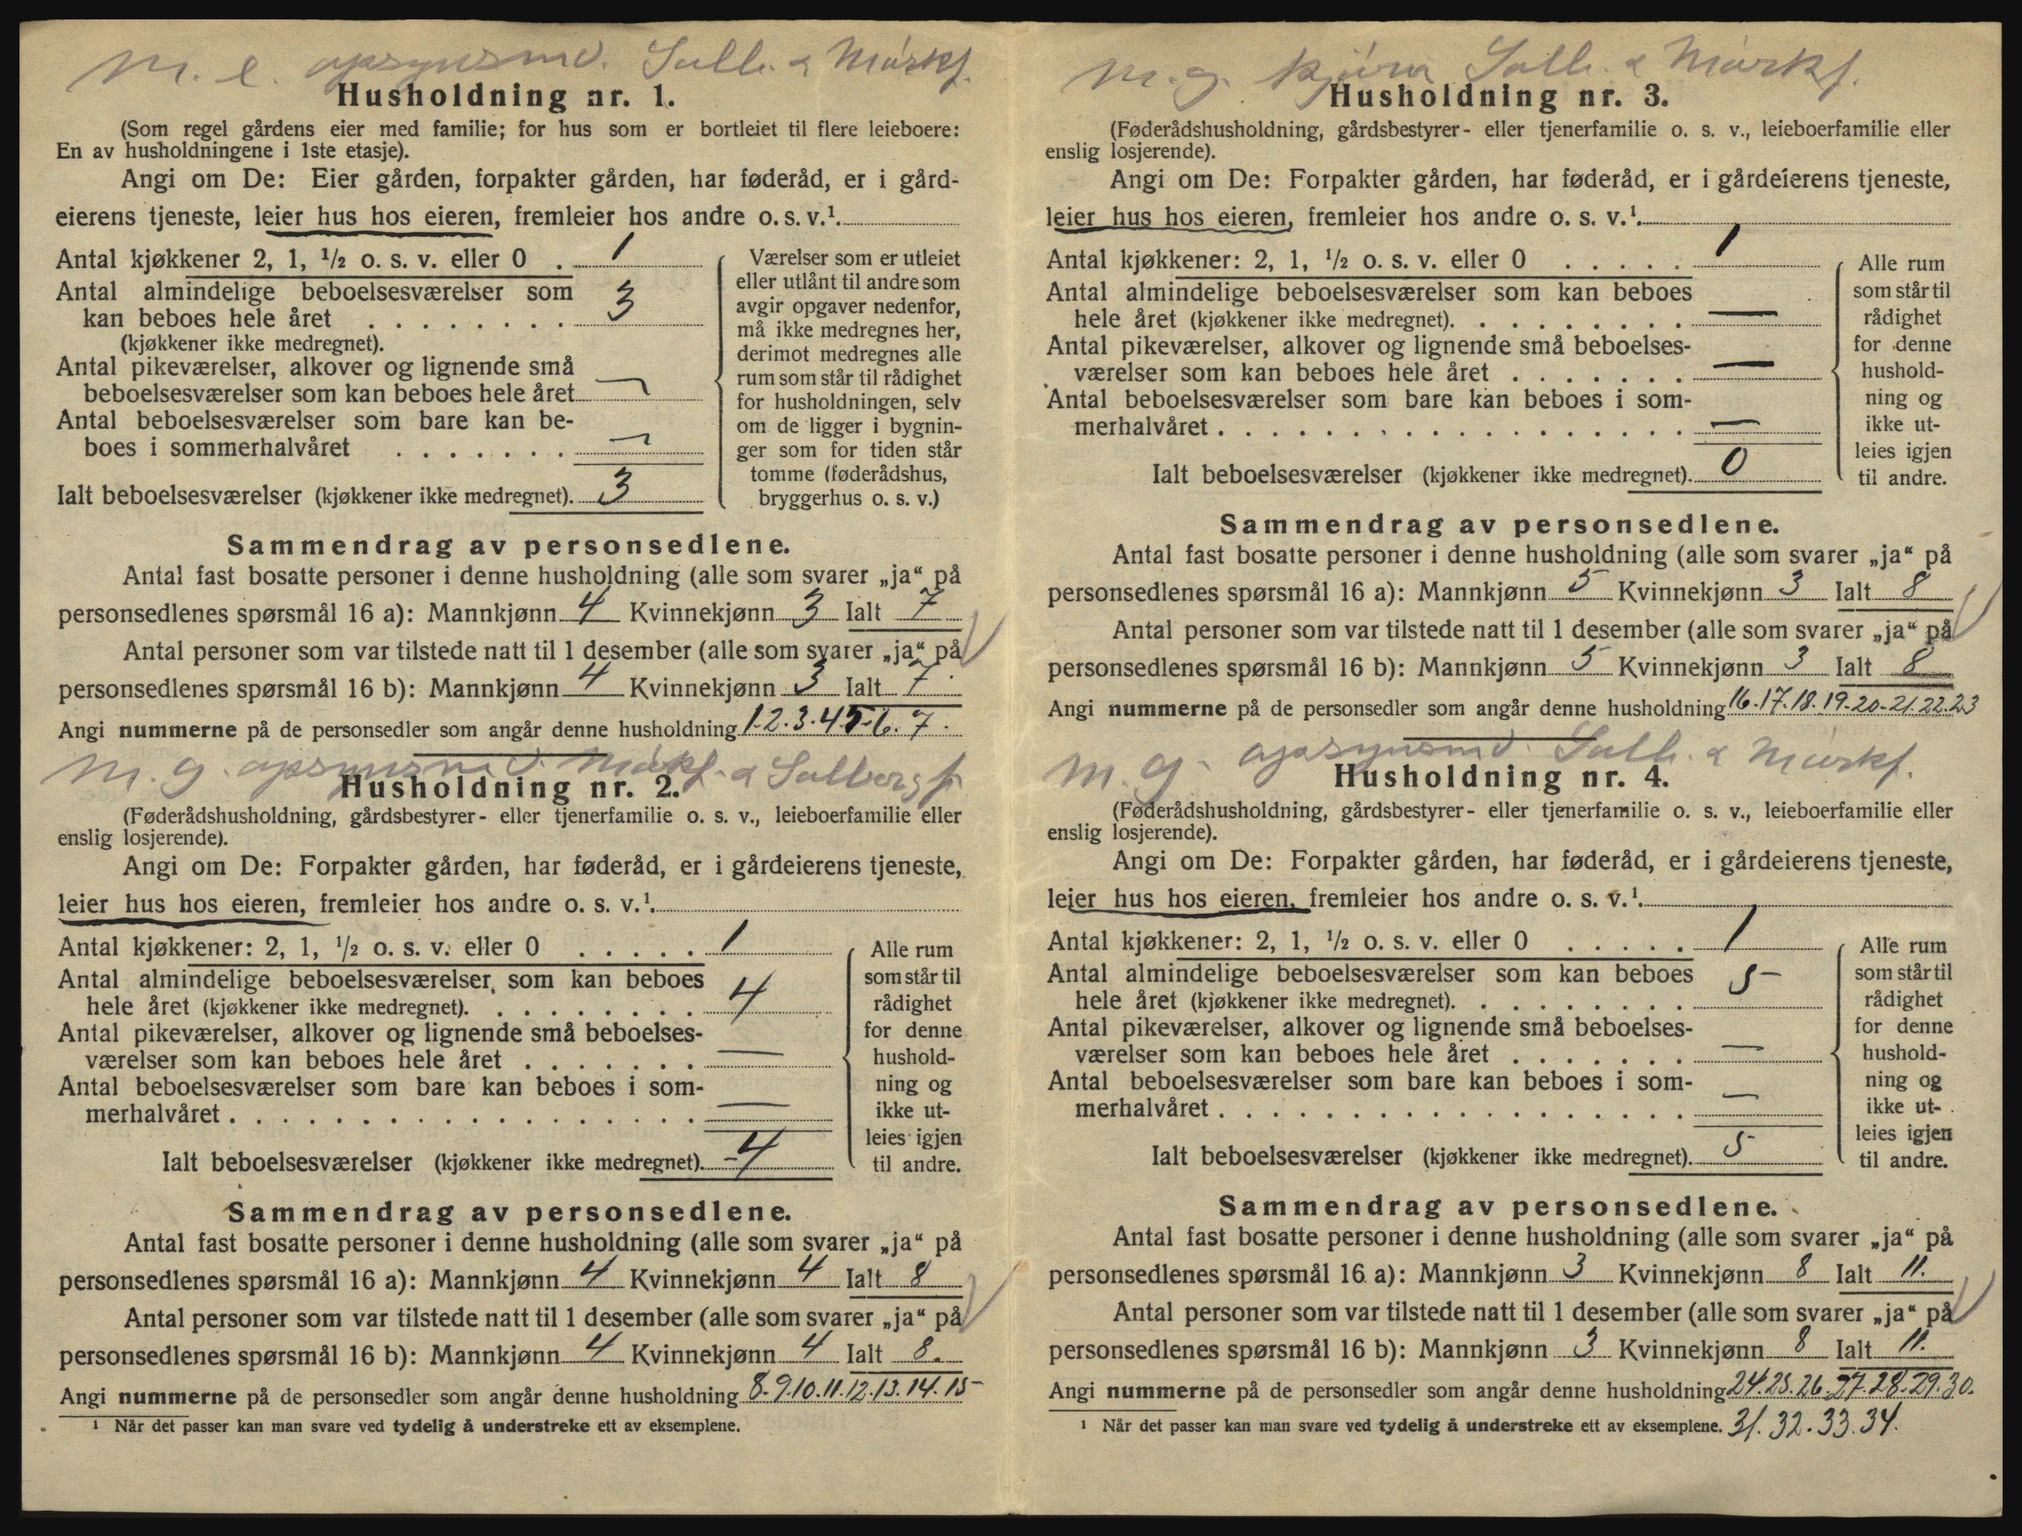 M. e. opsynsmd. Sulb. & Mårkf.
Husholdning nr. 1.
(Som regel gårdens eier med familie; for hus som er bortleiet til flere leieboere:
En av husholdningene i 1ste etasje).
Angi om De: Eier gården, forpakter gården, har føderåd, er i gård-
eierens tjeneste, leier hus hos eieren, fremleier hos andre o. s. v.¹.
Antal kjøkkener 2, 1, ½ o. s. v. eller 0 . 1
Antal almindelige beboelsesværelser som
kan beboes hele året . . . . . . . . 3
(kjøkkener ikke medregnet).
Antal pikeværelser, alkover og lignende små
beboelsesværelser som kan beboes hele året —
Antal beboelsesværelser som bare kan be-
boes i sommerhalvåret . . . . . . . —
Ialt beboelsesværelser (kjøkkener ikke medregnet). 3
Værelser som er utleiet
eller utlånt til andre som
avgir opgaver nedenfor,
må ikke medregnes her,
derimot medregnes alle
rum som står til rådighet
for husholdningen, selv
om de ligger i bygnin-
ger som for tiden står
tomme (føderådshus,
bryggerhus o. s. v.)
Sammendrag av personsedlene.
Antal fast bosatte personer i denne husholdning (alle som svarer „ja“ på
personsedlenes spørsmål 16 a): Mannkjønn 4 Kvinnekjønn 3 Ialt 7
Antal personer som var tilstede natt til 1 desember (alle som svarer „ja“ på
personsedlenes spørsmål 16 b): Mannkjønn 4 Kvinnekjønn 3 Ialt 7
Angi nummerne på de personsedler som angår denne husholdning 1.2.3.4.5.6.7.
M. g. opsynsmd. Mårkf. & Sulbergf.
Husholdning nr. 2.
(Føderådshusholdning, gårdsbestyrer- eller tjenerfamilie o. s. v., leieboerfamilie eller
enslig losjerende).
Angi om De: Forpakter gården, har føderåd, er i gårdeierens tjeneste,
leier hus hos eieren, fremleier hos andre o. s. v.¹.
Antal kjøkkener: 2, 1, ½ o. s. v. eller 0 . . . . . 1
Antal almindelige beboelsesværelser som kan beboes
hele året (kjøkkener ikke medregnet). . . . . . . . . 4
Antal pikeværelser, alkover og lignende små beboelses-
værelser som kan beboes hele året . . . . . . . —
Antal beboelsesværelser som bare kan beboes i som-
merhalvåret . . . . . . . . . . . . . . . . . . —
Ialt beboelsesværelser (kjøkkener ikke medregnet). 4
Alle rum
som står til
rådighet
for denne
hushold-
ning og
ikke ut-
leies igjen
til andre.
Sammendrag av personsedlene.
Antal fast bosatte personer i denne husholdning (alle som svarer „ja“ på
personsedlenes spørsmål 16 a): Mannkjønn 4 Kvinnekjønn 4 Ialt 8
Antal personer som var tilstede natt til 1 desember (alle som svarer „ja“ på
personsedlenes spørsmål 16 b): Mannkjønn 4 Kvinnekjønn 4 Ialt 8.
Angi nummerne på de personsedler som angår denne husholdning 8.9.10.11.12.13.14.15
¹ Når det passer kan man svare ved tydelig å understreke ett av eksemplene.
M. g. Sulb. & Mårkf.
Husholdning nr. 3.
(Føderådshusholdning, gårdsbestyrer- eller tjenerfamilie o. s. v., leieboerfamilie eller
enslig losjerende).
Angi om De: Forpakter gården, har føderåd, er i gårdeierens tjeneste,
leier hus hos eieren, fremleier hos andre o. s. v.¹.
Antal kjøkkener: 2, 1, ½ o. s. v. eller 0 . . . . . 1
Antal almindelige beboelsesværelser som kan beboes
hele året (kjøkkener ikke medregnet). . . . . . . . . —
Antal pikeværelser, alkover og lignende små beboelses-
værelser som kan beboes hele året . . . . . . . —
Antal beboelsesværelser som bare kan beboes i som-
merhalvåret . . . . . . . . . . . . . . . . . . —
Ialt beboelsesværelser (kjøkkener ikke medregnet). 0
Alle rum
som står til
rådighet
for denne
hushold-
ning og
ikke ut-
leies igjen
til andre.
Sammendrag av personsedlene.
Antal fast bosatte personer i denne husholdning (alle som svarer „ja“ på
personsedlenes spørsmål 16 a): Mannkjønn 5 Kvinnekjønn 3 Ialt 8
Antal personer som var tilstede natt til 1 desember (alle som svarer „ja“ på
personsedlenes spørsmål 16 b): Mannkjønn 5 Kvinnekjønn 3 Ialt 8
Angi nummerne på de personsedler som angår denne husholdning 16.17.18.19.20.21.22.23
M. g. opsynsmd. Sulb. & Mårkf.
Husholdning nr. 4.
(Føderådshusholdning, gårdsbestyrer- eller tjenerfamilie o. s. v., leieboerfamilie eller
enslig losjerende).
Angi om De: Forpakter gården, har føderåd, er i gårdeierens tjeneste,
leier hus hos eieren, fremleier hos andre o. s. v.¹.
Antal kjøkkener: 2, 1, ½ o. s. v. eller 0 . . . . . 1
Antal almindelige beboelsesværelser som kan beboes
hele året (kjøkkener ikke medregnet). . . . . . . . . 5
Antal pikeværelser, alkover og lignende små beboelses-
værelser som kan beboes hele året . . . . . . . —
Antal beboelsesværelser som bare kan beboes i som-
merhalvåret . . . . . . . . . . . . . . . . . . —
Ialt beboelsesværelser (kjøkkener ikke medregnet). 5
Alle rum
som står til
rådighet
for denne
hushold-
ning og
ikke ut-
leies igjen
til andre.
Sammendrag av personsedlene.
Antal fast bosatte personer i denne husholdning (alle som svarer „ja“ på
personsedlenes spørsmål 16 a): Mannkjønn 3 Kvinnekjønn 8 Ialt 11.
Antal personer som var tilstede natt til 1 desember (alle som svarer „ja“ på
personsedlenes spørsmål 16 b): Mannkjønn 3 Kvinnekjønn 8 Ialt 11.
Angi nummerne på de personsedler som angår denne husholdning 24.25.26.27.28.29.30.
¹ Når det passer kan man svare ved tydelig å understreke ett av eksemplene. 31.32.33.34.